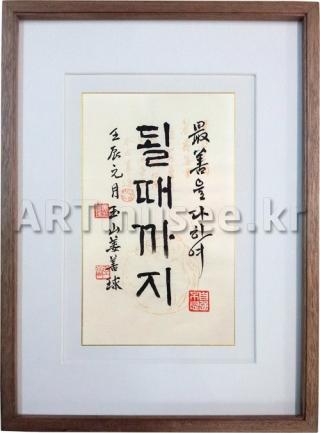 最善을다하여
될때까지
壬辰元月玉山姜善球
ARTmusee.kr